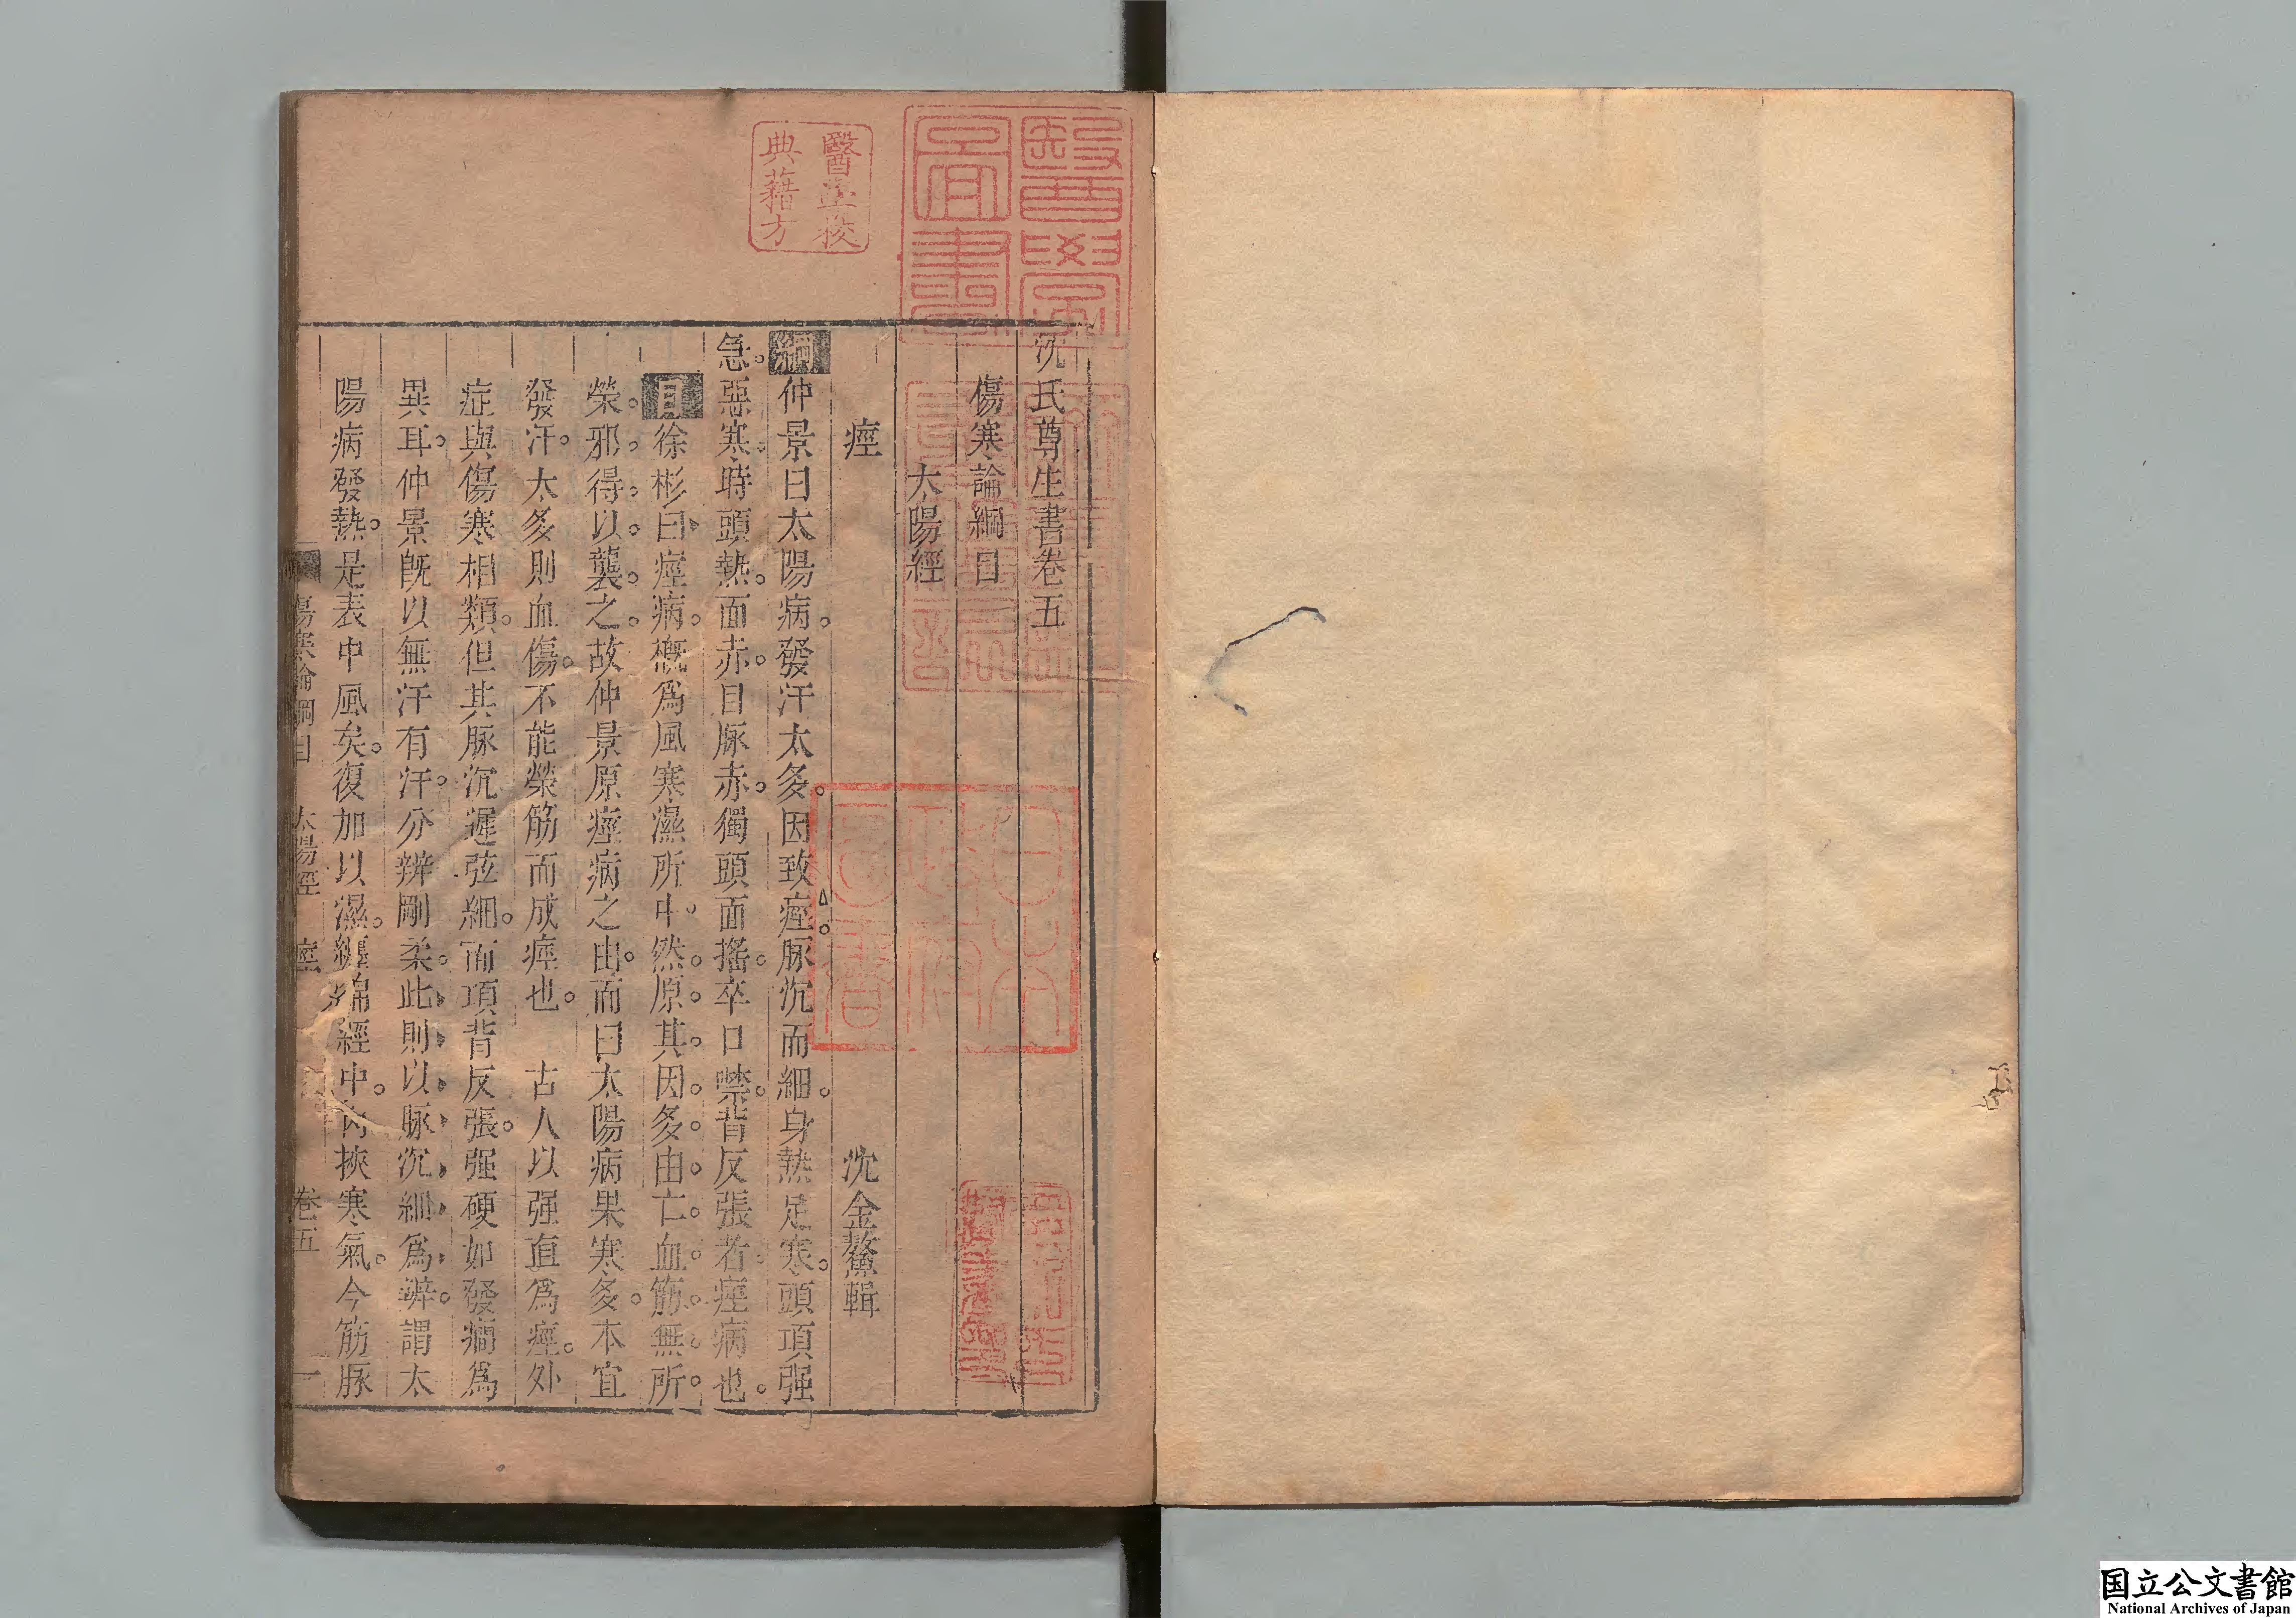 沈氏尊生書卷五
傷寒論綱目
太陽經
痙　沈金鰲輯
綱仲景曰太陽病。發汗太多。因致痙。脉沉而細。身熱足寒。頭項强
急。惡寒。時頭熱。面赤。目脉赤。獨頭面搖。卒口噤。背反張者。痙病也。
目徐彬曰。痙病。槪爲風寒濕所中。然。原。其。因。多。由。亡。血。筋。無。所。
榮。邪。得。以。襲。之。故仲景原痙病之由。而曰太陽病果寒多。本宜
發汗。太多則血傷。不能榮筋而成痙也。　古人以强直爲痙。外
症與傷寒相類。但其脉沉遲弦細。而項背反張。强硬如發癎爲
異耳。仲景旣以無汗有汗。分辨剛柔。此則以脉沉細爲辨。謂太
陽病發熱。是表中風矣。復加以濕。纏綿經中。內挾寒氣。今筋脉
傷寒論綱目　太陽經　痙　卷五　一
醫學校
典藉方
醫學
圖書
国立公文書館
National Archives of Japan